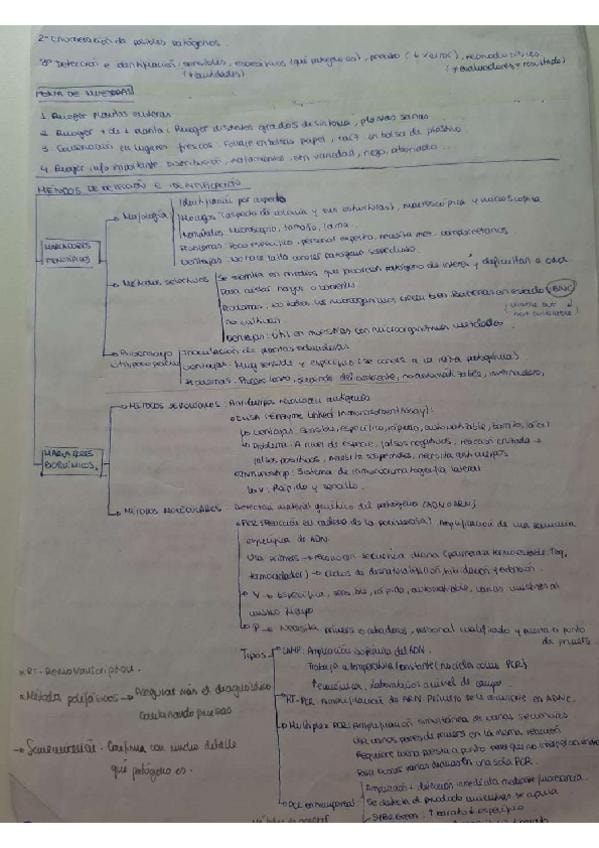 2º Enumeración de posibles patógenos.
3º Detección e identificación (sensibles, específicos (qué patógeno es), preciso (↓ error), reproducibles
(↑ cantidades) (≠ evaluadores = resultado)
TOMA DE MUESTRAS
1. Recoger plantas enteras
2. Recoger + de 1 planta: Recoger distintos grados de síntoma, plantas sanas
3. Conservación en lugares frescos: Follaje en bolsas papel, raíz en bolsa de plástico.
4. Recoger info importante: Distribución, tratamientos, variedad, riego, abonado...
MÉTODOS DE DETECCIÓN E IDENTIFICACIÓN
MARCADORES FENOTÍPICOS
Morfología
Identificación por aspecto
Hongos (aspecto de colonia y sus estructuras), macroscópica y microscópica
Nematodos: Microscopio, tamaño, forma...
Problemas: Poco específico, personal experto, necesita met. complementarios
Ventajas: No hace falta conocer patógeno sospechoso.
Métodos selectivos
Se siembra en medios que favorecen patógeno de interés y dificultan a otros
Para aislar hongos o bacterias.
Problemas: No todos los microorganismos crecen bien. Bacterias en estado VBNC
no cultivan (viable but not culturable)
Ventajas: Útil en muestras con microorganismos mezclados.
Bioensayo
Inoculación de plantas indicadoras
Ventajas: Muy sensible y específico (se conoce a la perfección patógeno)
Problemas: Proceso lento, depende del ambiente, no automatizable, invernadero,
MARCADORES BIOQUÍMICOS
MÉTODOS SEROLÓGICOS: Anticuerpos reconocen antígenos
ELISA (Enzyme Linked Immunosorbent Assay):
Ventajas: Sensible, específico, rápido, automatizable, barato, fácil
Problema: A nivel de especie, falsos negativos, reacción cruzada →
falsos positivos, necesita sospechoso, necesita anticuerpos
Immunostrip: Sistema de inmunocromatografía lateral
V: Rápido y sencillo.
MÉTODOS MOLECULARES: Detectan material genético del patógeno (ADN o ARN)
PCR (Reacción en cadena de la polimerasa): Amplificación de una secuencia
específica de ADN.
Usa primers → reconocen secuencia diana (polimerasa termoestable: Taq,
termociclador) → Ciclos de desnaturalización, hibridación y extensión.
V → Específica, sensible, rápida, automatizable, varias muestras al
mismo tiempo
P → Necesita primers o cebadores, personal cualificado y puesta a punto
de primers
Tipos
LAMP: Amplificación isotérmica del ADN.
Trabaja a temperatura constante (no ciclos como PCR)
Económica, laboratorios a nivel de campo
RT-PCR: Amplificación de ARN. Primero se convierte en ADNc.
Multiplex PCR: Amplificación simultánea de varias secuencias
Usa varios pares de primers en la misma reacción
Requiere buena puesta a punto para que no interfieran entre
Para buscar varias dianas en una sola PCR.
PCR en tiempo real:
Amplificación + detección inmediata mediante fluorescencia.
Se detecta el producto mientras se copia
SYBR Green: ↑ barato ↓ específico
* RT: Retrotranscripción.
* Métodos polifásicos → Asegurar más el diagnóstico
combinando pruebas
→ Secuenciación: Confirma con mucho detalle
qué patógeno es.